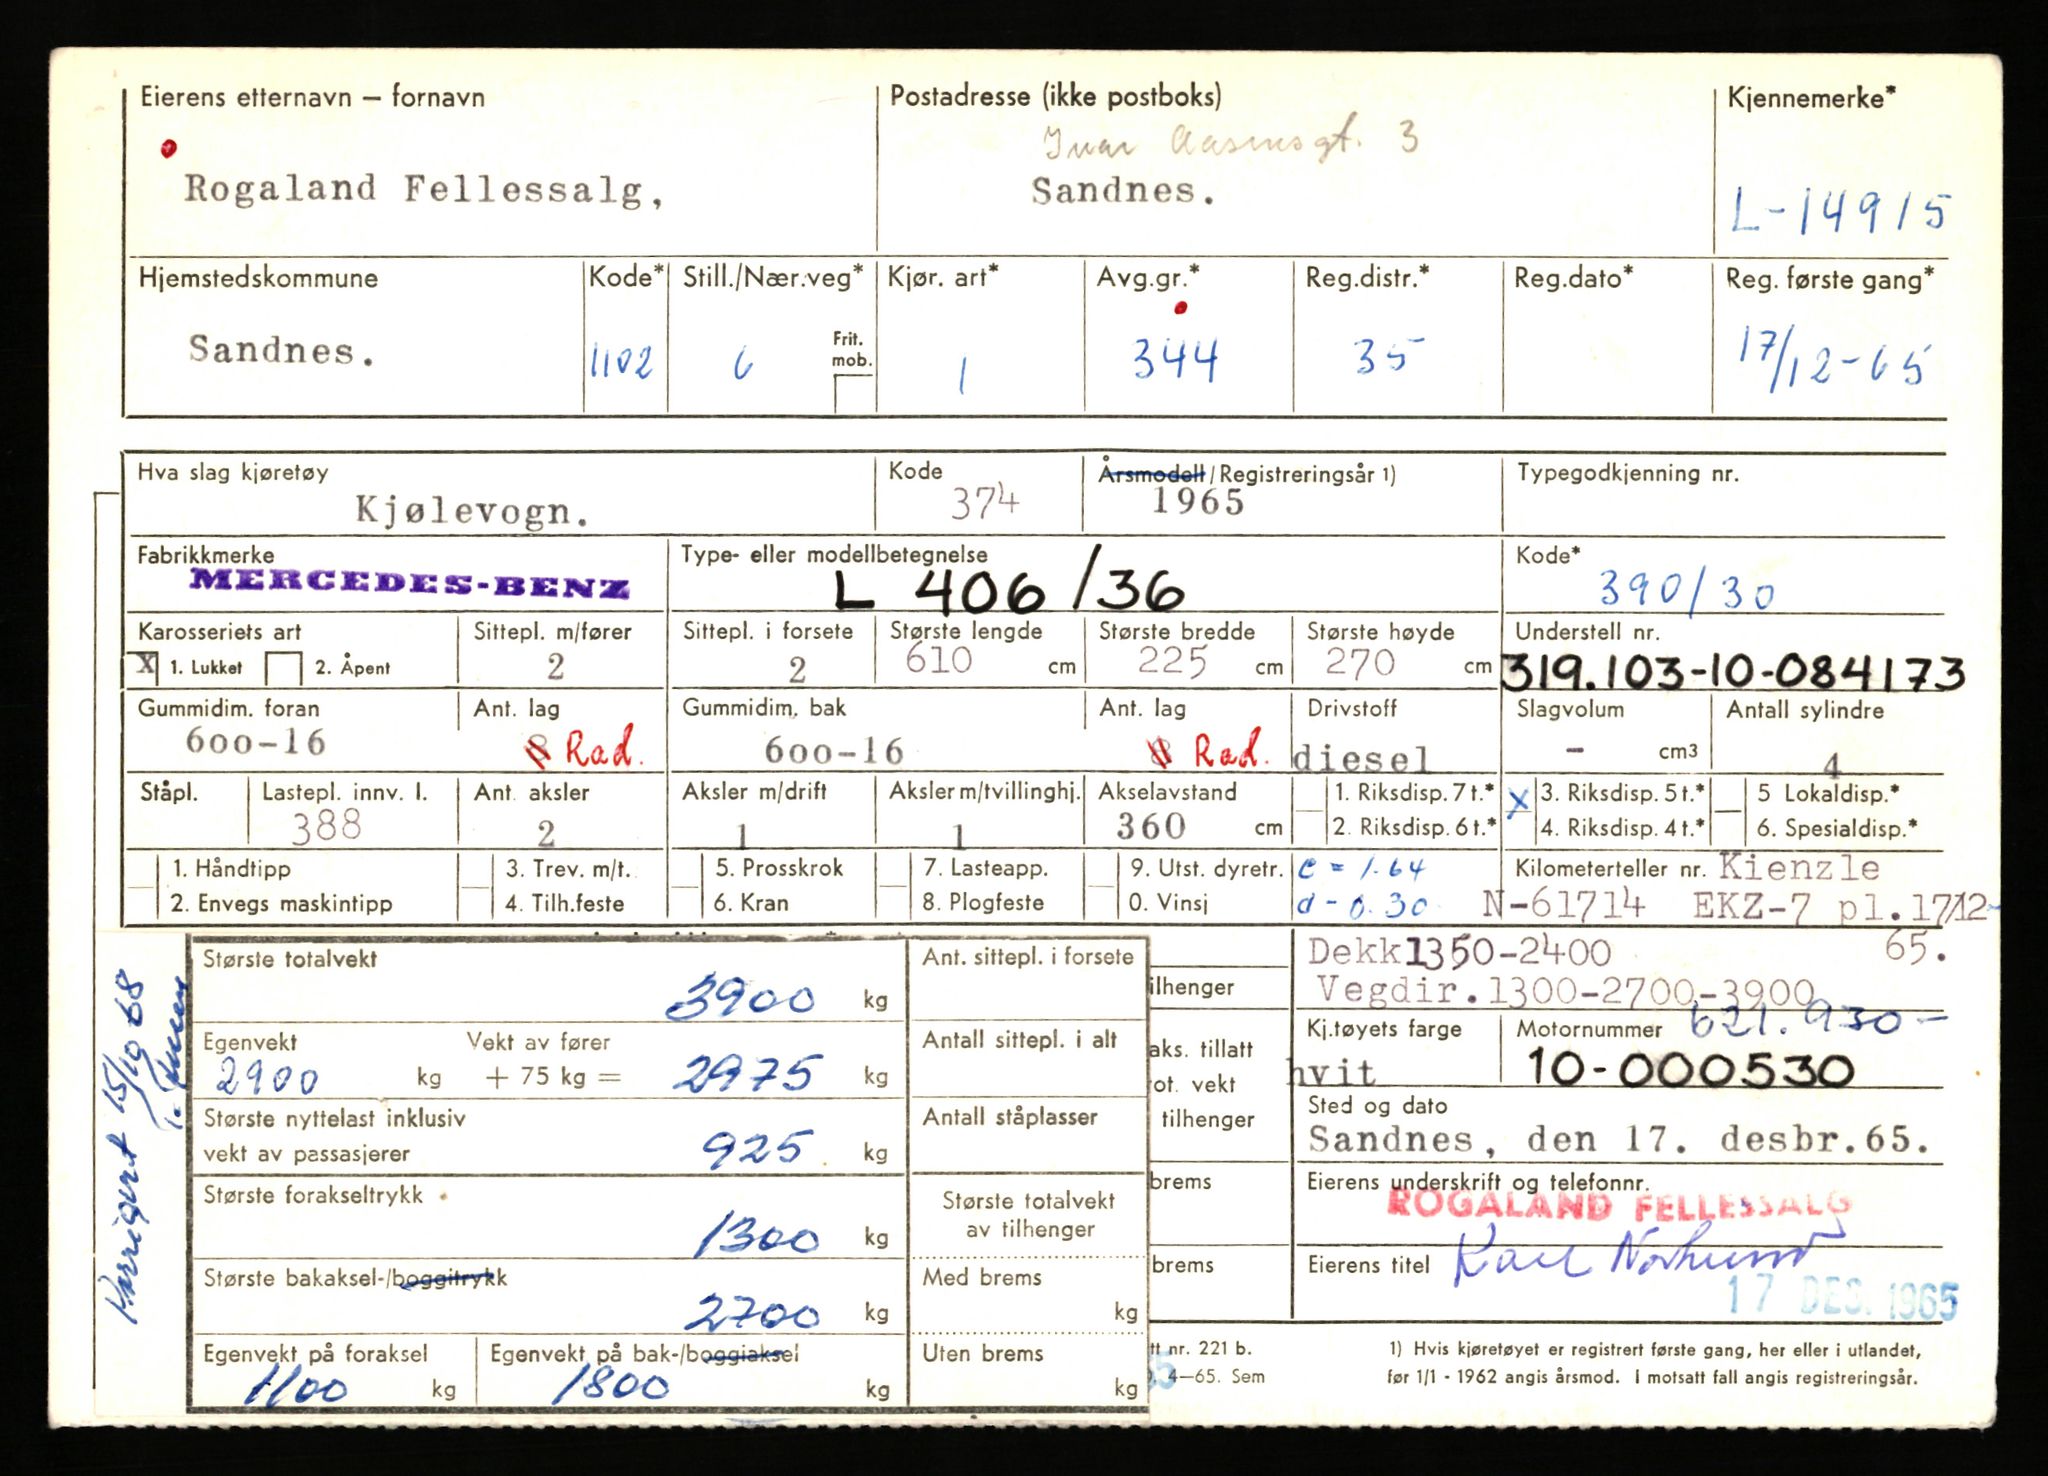 Eierens etternavn – fornavn Postadresse (ikke postboks) Kjennemerke*
Ivar Aasensgt. 3
Rogaland Fellessalg, Sandnes. L-14915
Hjemstedskommune Kode* Still./Nær.veg* Kjør. art* Avg.gr.* Reg.distr.* Reg.dato* Reg. første gang*
Sandnes. 1102 6 Frit. mob. 1 344 35 17/12-65
Hva slag kjøretøy Kode Årsmodell/Registreringsår 1) Typegodkjenning nr.
Kjølevogn. 374 1965
Fabrikkmerke Type- eller modellbetegnelse Kode*
MERCEDES-BENZ L 406/36 390/30
Karosseriets art Sittepl. m/fører Sittepl. i forsete Største lengde Største bredde Største høyde Understell nr.
X 1. Lukket 2. Åpent 2 2 610 cm 225 cm 270 cm 319.103-10-084173
Gummidim. foran Ant. lag Gummidim. bak Ant. lag Drivstoff Slagvolum Antall sylindre
600-16 8 Rad. 600-16 8 Rad. diesel - cm3 4
Ståpl. Lastepl. innv. l. Ant. aksler Aksler m/drift Aksler m/tvillinghj. Akselavstand 1. Riksdisp. 7 t.* X 3. Riksdisp. 5 t.* 5 Lokaldisp.*
388 2 1 1 360 cm 2. Riksdisp. 6 t.* 4. Riksdisp. 4 t.* 6. Spesialdisp.*
1. Håndtipp 3. Trev. m/t. 5. Prosskrok 7. Lasteapp. 9. Utst. dyretr. c = 1.64 Kilometerteller nr. Kienzle
2. Envegs maskintipp 4. Tilh.feste 6. Kran 8. Plogfeste 0. Vinsj d - 0.30 N-61714 EKZ-7 pl.17/12-
65.
Dekk1350-2400
Vegdir.1300-2700-3900
Største totalvekt 3900 kg Ant. sittepl. i forsete
ilhenger
Egenvekt Vekt av fører Antall sittepl. i alt
2900 kg + 75 kg = 2975 kg
aks. tillatt
ot. vekt
tilhenger
Kj.tøyets farge Motornummer 621.930-
hvit 10-000530
Største nyttelast inklusiv Antall ståplasser
vekt av passasjerer 925 kg
Sted og dato
Sandnes, den 17. desbr.65.
Største forakseltrykk 1300 kg
Største totalvekt
av tilhenger
brems
Eierens underskrift og telefonnr.
ROGALAND FELLESSALG
Største bakaksel-/boggitrykk 2700 kg Med brems kg
brems
Eierens titel Karl
17 DES. 1965
Egenvekt på foraksel Egenvekt på bak-/boggiaksel Uten brems
1100 kg 1800 kg kg
tt nr. 221 b.
4—65. Sem
1) Hvis kjøretøyet er registrert første gang, her eller i utlandet,
før 1/1 - 1962 angis årsmod. I motsatt fall angis registreringsår.
Korrigert 15/10 68